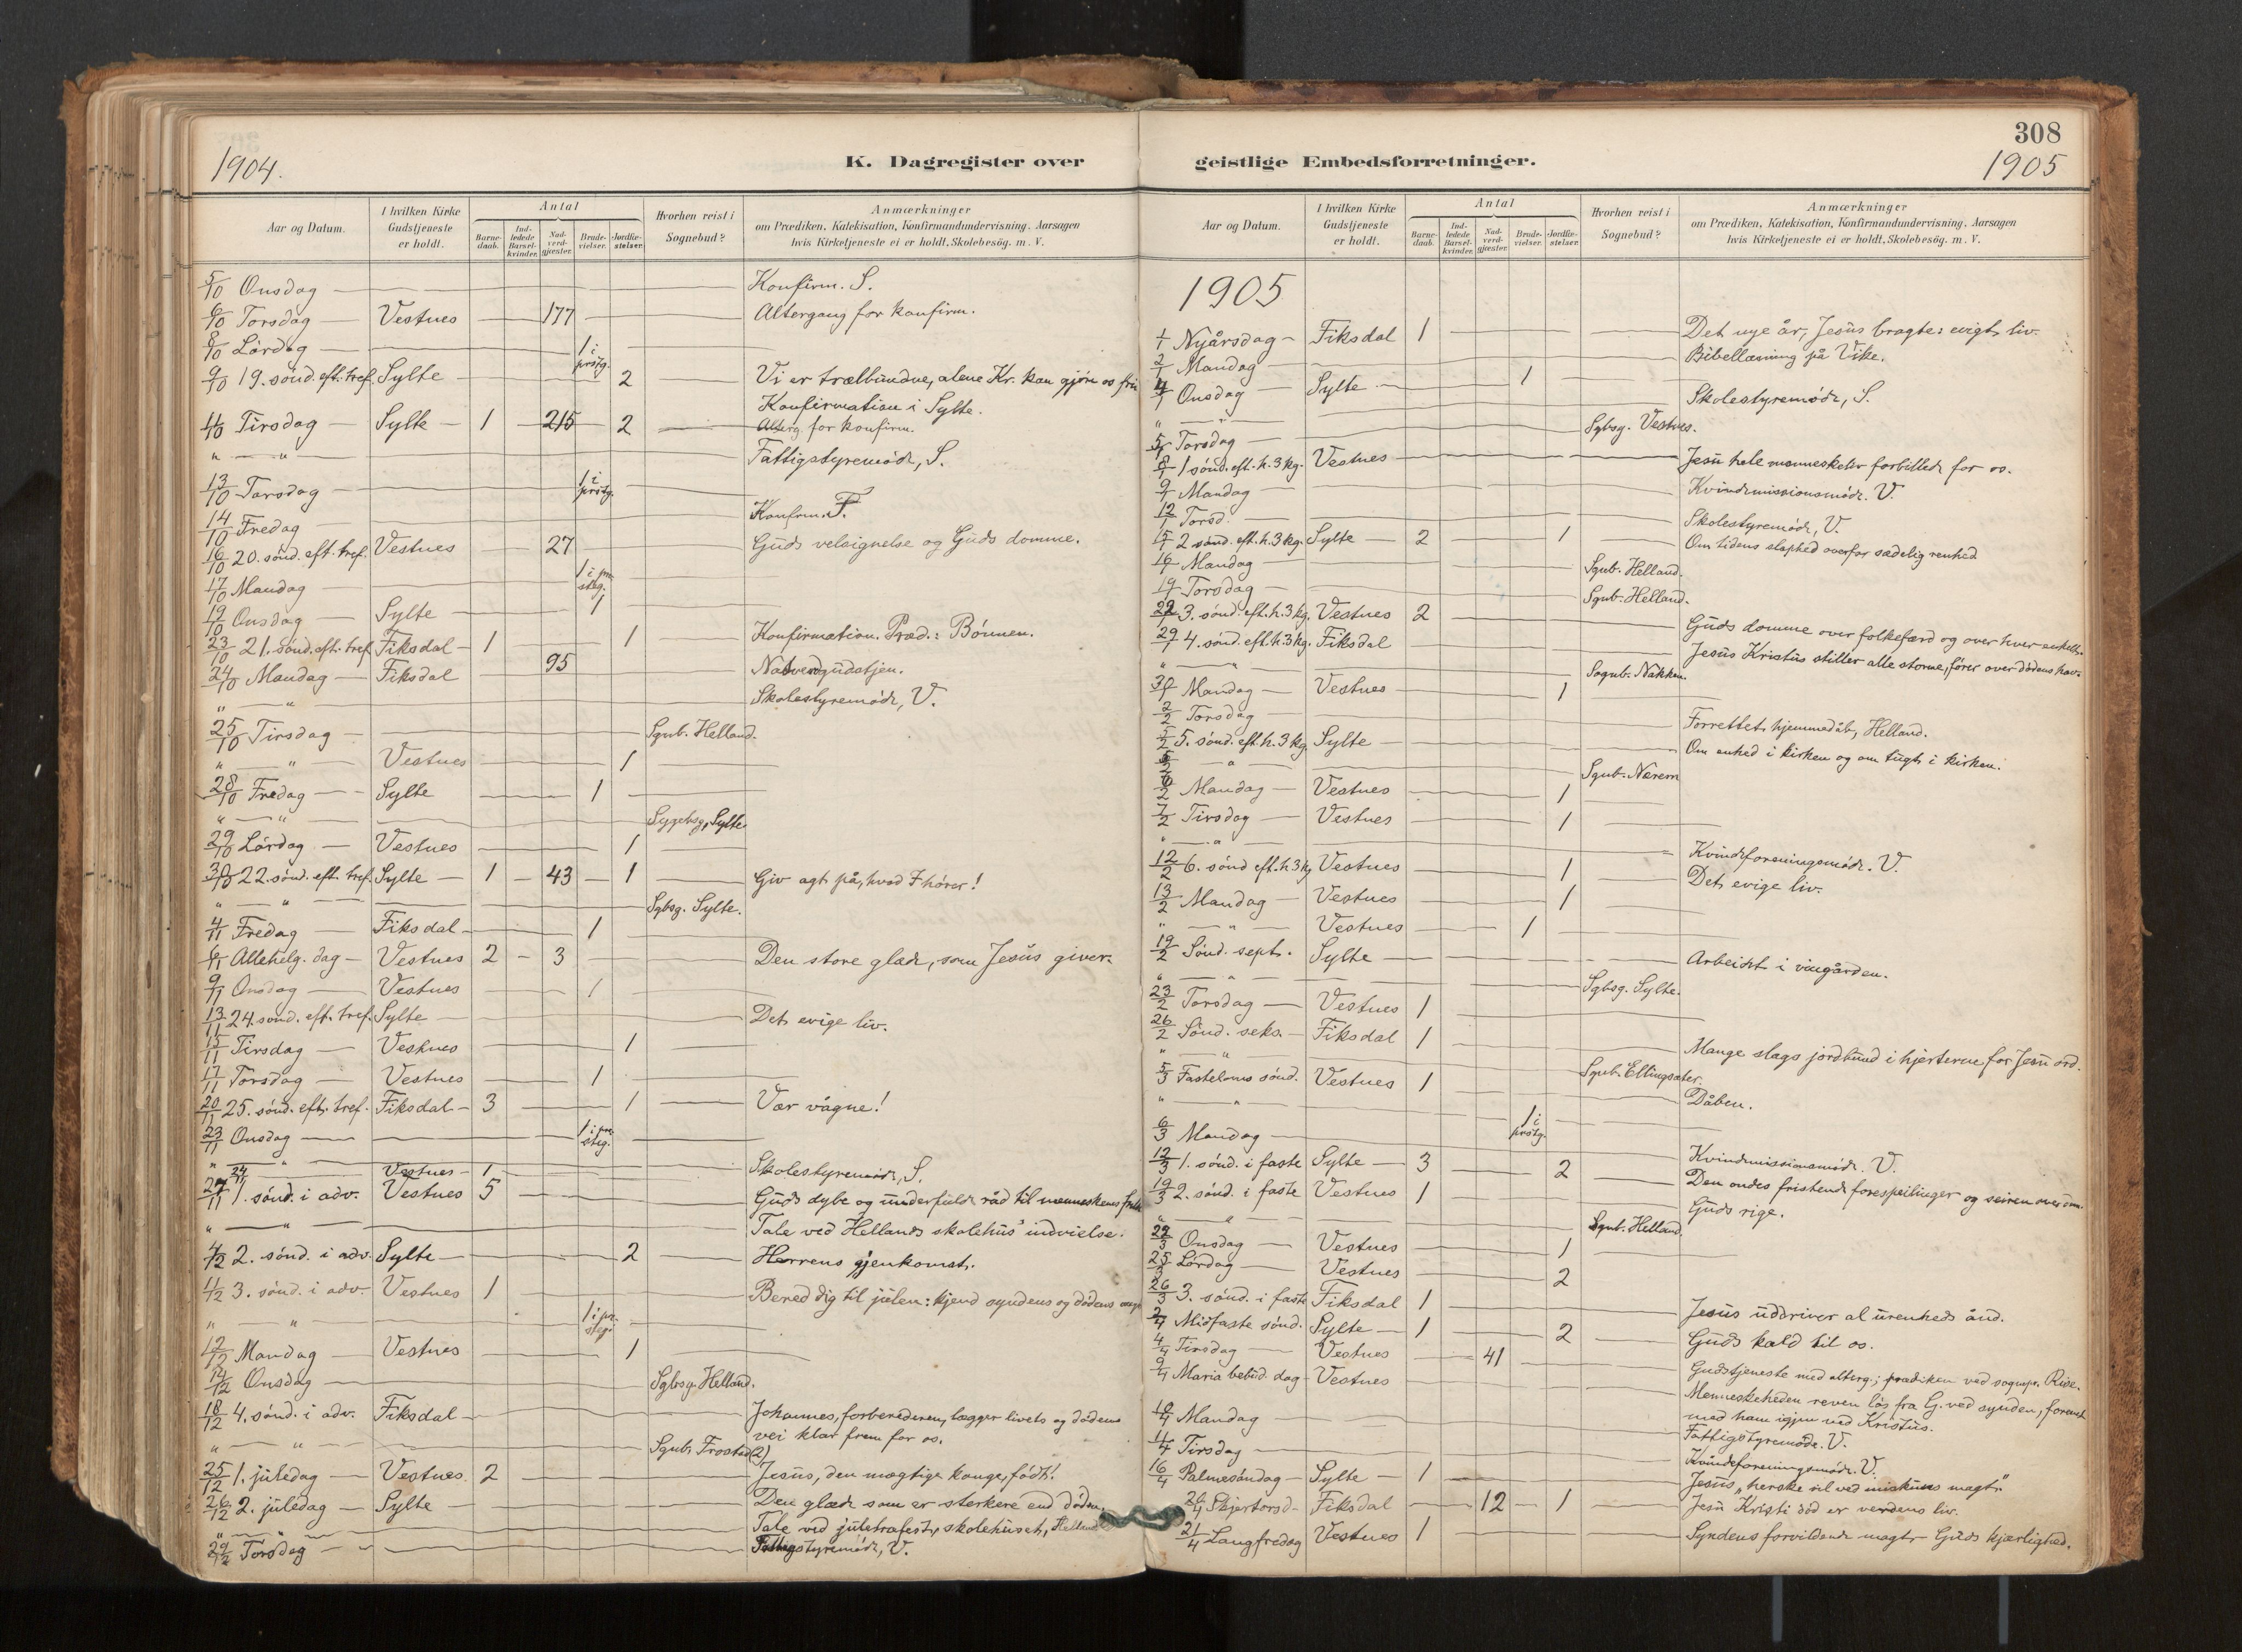 1904.
K. Dagregister over
Aar og Datum.
I hvilken Kirke Gudstjeneste er holdt.
Antal
Barnedaab.
Indledede Barselkvinder.
Nadverdgjæster.
Brudevielser.
Jordfæstelser.
Hvorhen reist i Sognebud?
Anmærkninger
om Prædiken, Katekisation, Konfirmandundervisning, Aarsagen
hvis Kirketjeneste ei er holdt, Skolebesög, m. V.
5/10 Onsdag — Konfirm. S.
6/10 Torsdag — Vestnes — 177 — Altergang for konfirm.
8/10 Lördag — 1 i prstg.
9/10 19. sönd. eft. tref. Sylte — 2 — Vi er trælbundne, alene Kr. kan gjöre os fri
Konfirmation i Sylte.
11/10 Tirsdag — Sylte — 1 — 215 — 2 — Alterg. for konfirm.
" — " — Fattigstyremöde, S.
13/10 Torsdag — 1 i prstg.
14/10 Fredag — Konfirm. F.
16/10 20. sönd. eft. tref. Vestnes — 27 — Guds velsignelse og Guds domme.
17/10 Mandag — 1 i prsteg.
19/10 Onsdag — Sylte — 1
23/10 21. sönd. eft. tref. Fiksdal — 1 — 1 — Konfirmation. Præd.: Bönnen.
24/10 Mandag — Fiksdal — 95 — Nadverdgudstjen.
" — " — Skolestyremöde, V.
25/10 Tirsdag — Sgnb. Helland.
" — " — Vestnes — 1
28/10 Fredag — Sylte — 1
" — " — Sygebsg, Sylte
29/10 Lördag — Vestnes — 1
30/10 22. sönd. eft. tref. Sylte — 1 — 43 — 1 — Giv agt på, hvad I hörer!
" — " — Sgbsg. Sylte.
4/11 Fredag — Fiksdal — 1
6/11 Allehelg. dag — Vestnes 2 — 3 — Den store glæde, som Jesus giver.
9/11 Onsdag — Vestnes — 1
13/11 24. sönd. eft. tref. Sylte — Det evige liv.
15/11 Tirsdag — Vestnes — 1
17/11 Torsdag — Vestnes — 1
20/11 25. sönd. eft. tref. Fiksdal — 3 — 1 — Vær vågne!
23/11 Onsdag — 1 i prsteg.
" — " — Skolestyremöde, S.
24/11 Vestnes — 1
27/11 1. sönd. i adv. Vestnes 5 — Guds dybe og underfulde råd til menneskenes frelse
" — " — Tale ved Hellands skolehus' indvielse.
4/12 2. sönd. i adv. Sylte — 2 — Herrens gjenkomst.
11/12 3. sönd. i adv. Vestnes 1 — Bered dig til julen: kjend syndens og dödens
" — " — 1 i prsteg.
12/12 Mandag — Vestnes — 1
14/12 Onsdag — Sgbsg. Helland.
18/12 4. sönd. i adv. Fiksdal — Johannes, forberederen, lægger livets og dödens
vei klar frem for os.
" — " — Sgnb. Frostad (2)
25/12 1. juledag — Vestnes. 2 — Jesus, den mægtige konge, födt!
26/12 2. juledag — Sylte — Den glæde som er sterkere end döden.
" — " — Tale ved juletræfest, skolehuset, Helland
29/12 Torsdag — Fattigstyremöde, V.
308
geistlige Embedsforretninger.
1905
Aar og Datum.
I hvilken Kirke Gudstjeneste er holdt.
Antal
Barnedaab.
Indledede Barselkvinder.
Nadverdgjæster.
Brudevielser.
Jordfæstelser.
Hvorhen reist i Sognebud?
Anmærkninger
om Prædiken, Katekisation, Konfirmandundervisning, Aarsagen
hvis Kirketjeneste ei er holdt, Skolebesög, m. V.
1905
1/1 Nyårsdag — Fiksdal 1 — Det nye år, Jesus bragte: evigt liv.
2/1 Mandag — Bibellæsning på Vike.
4/1 Onsdag — Sylte — 1
" — " — Skolestyremöde, S.
5/1 Torsdag — Sgbsg. Vestnes.
8/1 1 sönd. eft. h. 3 kg. Vestnes — Jesu hele menneskeliv forbillede for os.
9/1 Mandag — Kvindemissionsmöde. V.
12/1 Torsd. — Skolestyremöde, V.
15/1 2 sönd. eft. h. 3 kg. Sylte — 2 — 1 — Om tidens slaphed overfor sædelig renhed
16/1 Mandag — Sgnb. Helland.
19/1 Torsdag — Sgnb. Helland.
22/1 3. sönd. eft. h. 3 kg. Vestnes 2 — Guds domme over folkefærd og over hver enkelt.
29/1 4. sönd. eft. h. 3 kg. Fiksdal — Jesus Kristus stiller alle storme, förer over dödens hav.
" — " — Sognb. Nakken.
30/1 Mandag — Vestnes — 1
2/2 Torsdag — Forrettet hjemmedåb, Helland.
5/2 5. sönd. eft. h. 3 kg. Sylte — Om enhed i kirken og om tugt i kirken.
5/2 — " — Sgnb. Nerem
6/2 Mandag — Vestnes — 1
7/2 Tirsdag — Vestnes — 1
" — " — Kvindeforeningsmöde. V.
12/2 6. sönd eft. h. 3 kg Vestnes — 1 — Det evige liv.
13/2 Mandag — Vestnes — 1
" — " — Vestnes — 1
19/2 Sönd. sept. Sylte — Arbeidet i vingården.
" — " — Sgbsg. Sylte.
23/2 Torsdag — Vestnes 1
26/2 Sönd. seks. — Fiksdal 1 — Mange slags jordbund i hjerterne for Jesu ord.
" — " — Sgnb. Ellingsæter.
5/3 Fastelavns sönd. Vestnes 1 — Dåben.
" — " — 1 i prstg.
6/3 Mandag — Kvindemissionsmöde. V.
12/3 1. sönd. i faste Sylte — 3 — 2 — Den ondes fristende forespeilinger og seiren over dem.
19/3 2. sönd. i faste Vestnes 1 — Guds rige.
" — " — Sgnb. Helland.
22/3 Onsdag — Vestnes — 1
25/3 Lördag — Vestnes — 2
26/3 3. sönd. i faste Fiksdal 1 — Jesus uddriver al urenheds ånd.
2/4 Midfaste sönd. Sylte — 1 — 2 — Guds kald til os.
4/4 Tirsdag — Vestnes — 41 — Gudstjeneste med alterg.; prædiken ved sognepr. Rise.
9/4 Maria bebud. dag — Vestnes — Menneskeheden reven lös fra G. ved synden, forenet
med ham igjen ved Kristus.
10/4 Mandag — Fattigstyremöde. V.
11/4 Tirsdag — Kvindeforeningsmöde. V.
16/4 Palmesöndag — Sylte — 1 — Jesus „herske vil ved miskuns magt."
20/4 Skjertorsd. Fiksdal — 12 — 1 — Jesu Kristi död er verdens liv.
21/4 Langfredag Vestnes 1 — Syndens forvildende magt, Guds kjærlighed.